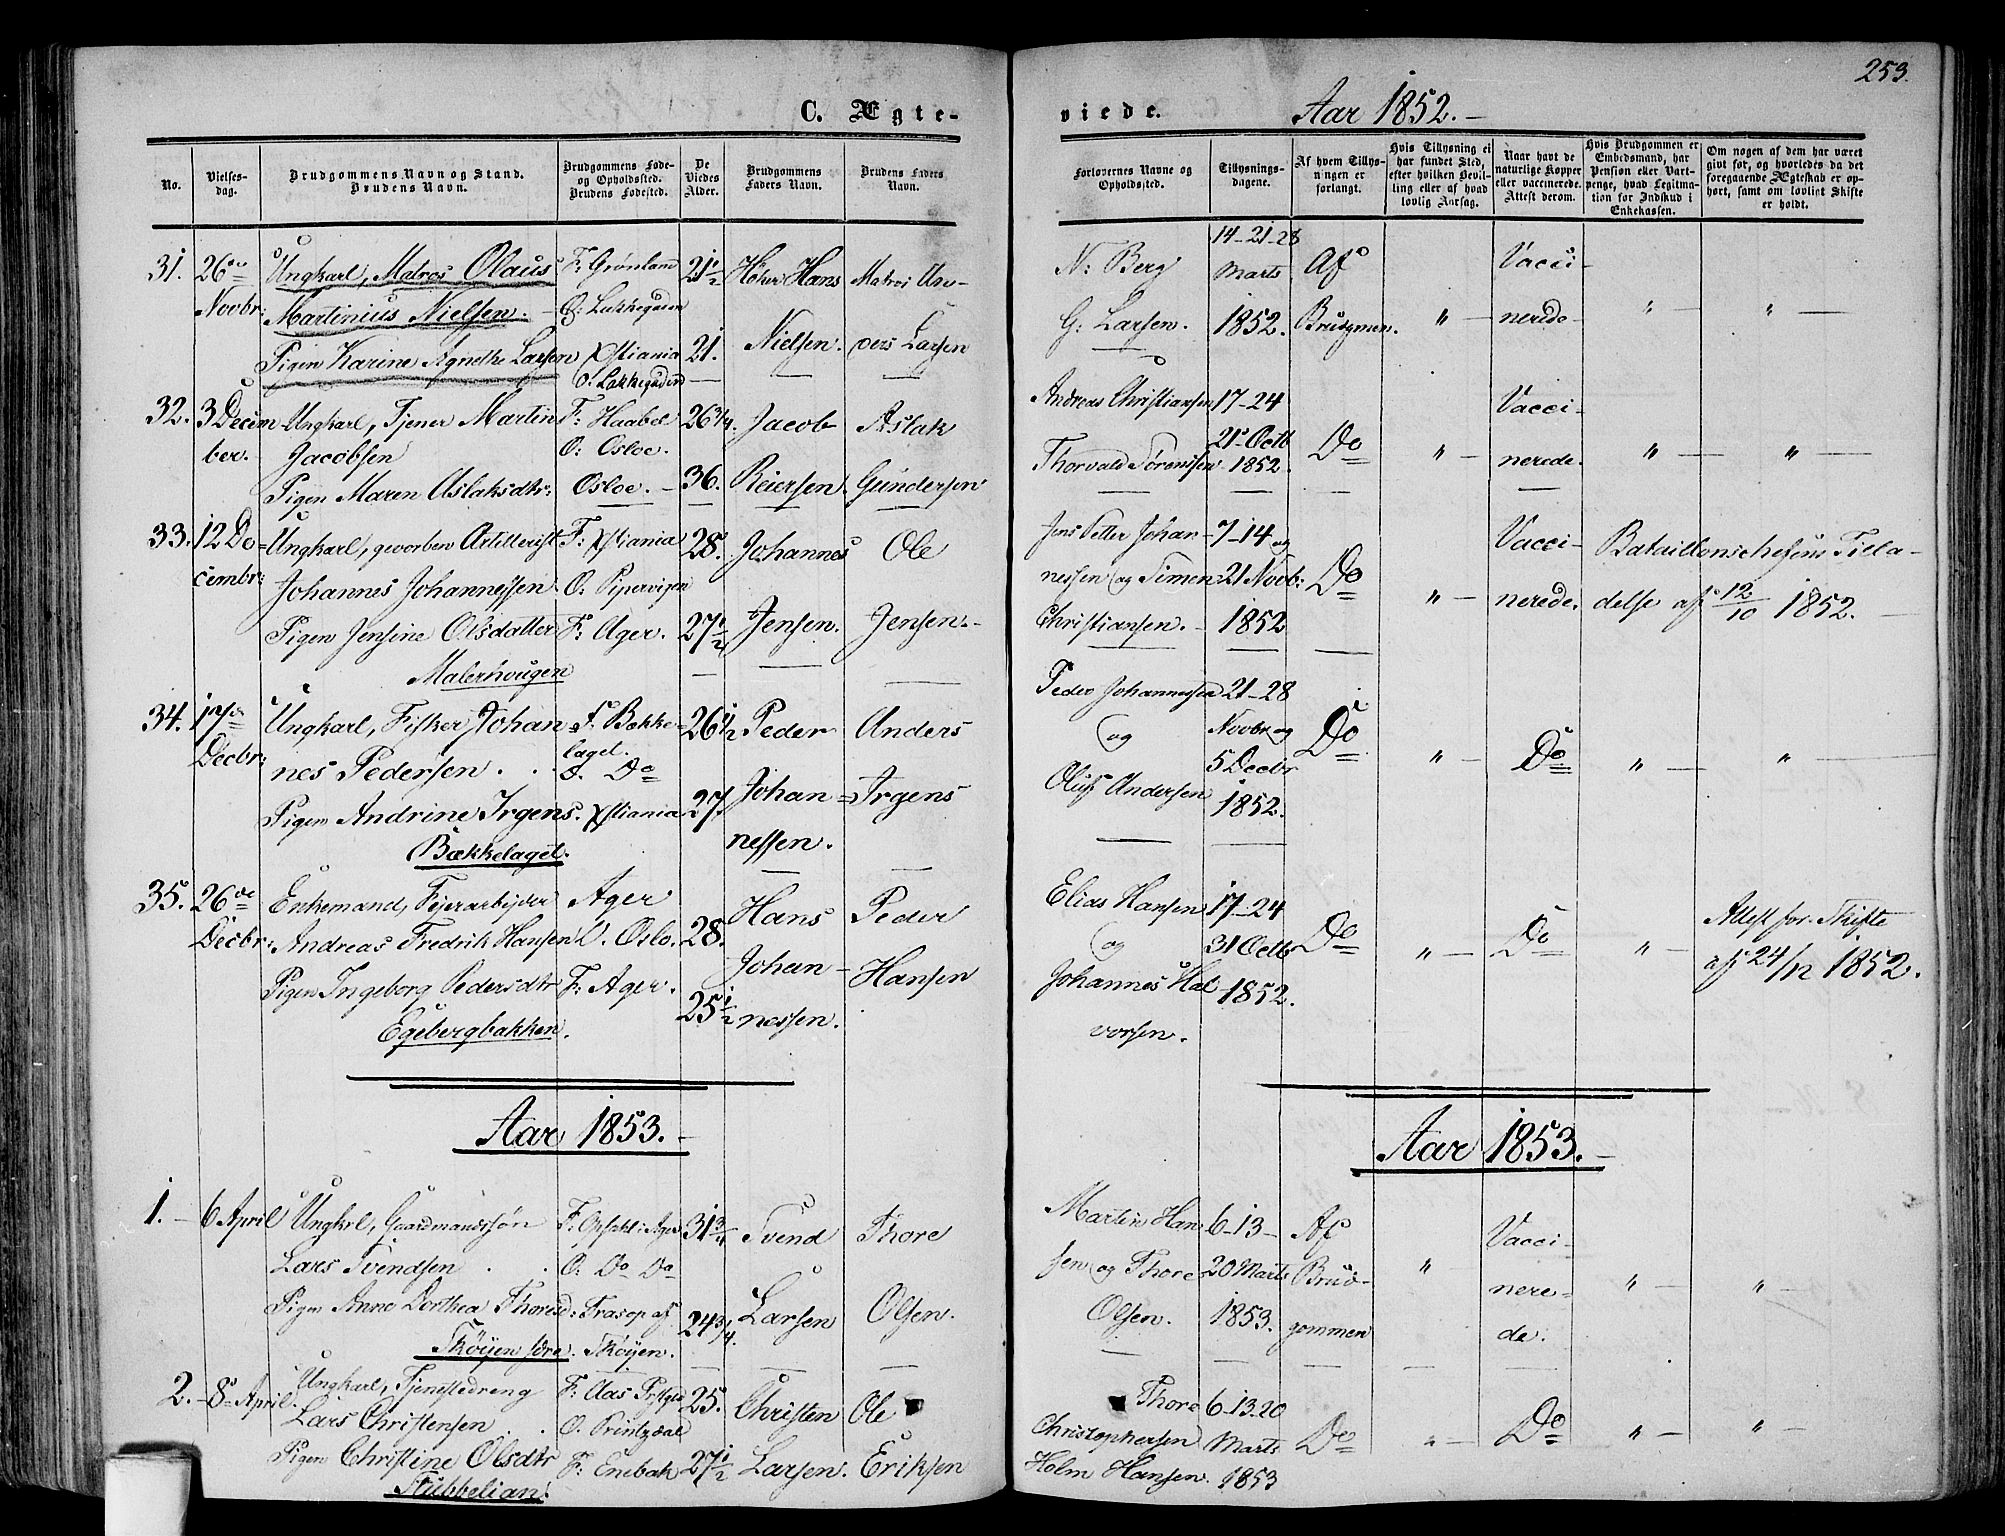 253.
C. Ægte-
viede.
Aar 1852.-
No.
Vielses-
dag.
Brudgommens Navn og Stand.
Brudens Navn.
Brudgommens Føde-
og Opholdssted.
Brudens Fødested.
De
Viedes
Alder.
Brudgommens
Faders Navn.
Brudens Faders
Navn.
Forlovernes Navne og
Opholdssted.
Tillysnings-
dagene.
Af hvem Tillys-
ningen er
forlangt.
Hvis Tillysning ei
har fundet Sted,
efter hvilken Bevil-
ling eller af hvad
lovlig Aarsag.
Naar havt de
naturlige Kopper
eller vaccinerede.
Attest derom.
Hvis Brudgommen er
Embedsmand, har
Pension eller Vart-
penge, hvad Legitima-
tion for Indskud i
Enkekassen.
Om nogen af dem har været
gift før, og hvorledes da det
foregaaende Ægteskab er op-
hørt, samt om lovligt Skifte
er holdt.
31. 26de Ungkarl, Matros Olaus F: Grønland 21½ Høker Hans Matros An-
Novbr: Martinius Nielsen. O: Lakkegaden
Pigen Karine Agnethe Larsen Xstiania 21. Nielsen. ders Larsen
O: Lakkegaden
N: Berg 14-21-28 Marts Af Vacci-
G: Larsen. 1852. Brudgmen. " nerede " "
32. 3 Decem- Ungkarl, Tjener Martin F: Haabøl 26¾. Jacob Aslak
ber. Jacobsen O: Osloe.
Pigen Maren Aslaksdtr: Osloe. 36. Reiersen. Gundersen
Andreas Christiansen 17-24 Vacci-
Thorvald Sørensen 21 Octb 1852. Do " nerede. " "
33. 12 De- Ungkarl, geworben Artillerist F: Xstiania 28. Johannes Ole
cembr: Johannes Johannessen O. Pipervigen
Pigen Jensine Olsdatter F: Ager. 27½ Jensen. Jensen.
Malerhougen
Jens Petter Johan- 7-14 og Vacci- Bataillonschefens Tilla-
nessen og Simen 21 Novb: Do " nerede. delse af 12/10 1852.
Christiansen. 1852
34. 17de Ungkarl, Fisker Johan- F. Bække- 26½ Peder Anders
Decbr: nes Pedersen. laget. O. Do
Pigen Andrine Irgens. Xstiania 27 Johan- Irgens
Bækkelaget. nessen.
Peder Johannesen 21-28
og Novbr og Do " Do " "
Oluf Andersen 5 Decbr 1852.
35. 26de Enkemand, Fejerarbejder Ager Hans Peder
Decbr: Andreas Fredrik Hansen O. Oslo. 28.
Pigen Ingeborg Pedersdtr F: Ager. 25½ Johan- Hansen
Egebergbakken. nessen.
Elias Hansen 17-24 Attest for Skifte
og 31 Octb Do " Do " af 24/12 1852.
Johannes Hal- 1852.
vorsen.
Aar 1853.-
Aar 1853.-
1. 6 April Ungkrl, Gaardmandssøn F. Opsahl i Ager 31¾ Svend Thore
Lars Svendsen O: Do Do
Pigen Anne Dorthea Thoresd: Trasop af 24¾. Larsen Olsen.
Skøyen sdre. Skøyen.
Martin Han- 6-13- Af Vacci-
sen og Thore 20 Marts Brud- " nere- " "
Olsen. 1853. gommen de.
2. 8 April. Ungkarl, Tjenestedreng F: Aas Prstgd 25. Christen Ole
Lars Christensen O. Printzdal
Pigen Christine Olsdtr F: Enebak 27½ Larsen. Eriksen
Stubbelian.
Thore 6-13-20
Christophersen Marts Do " Do " "
Holm Hansen. 1853